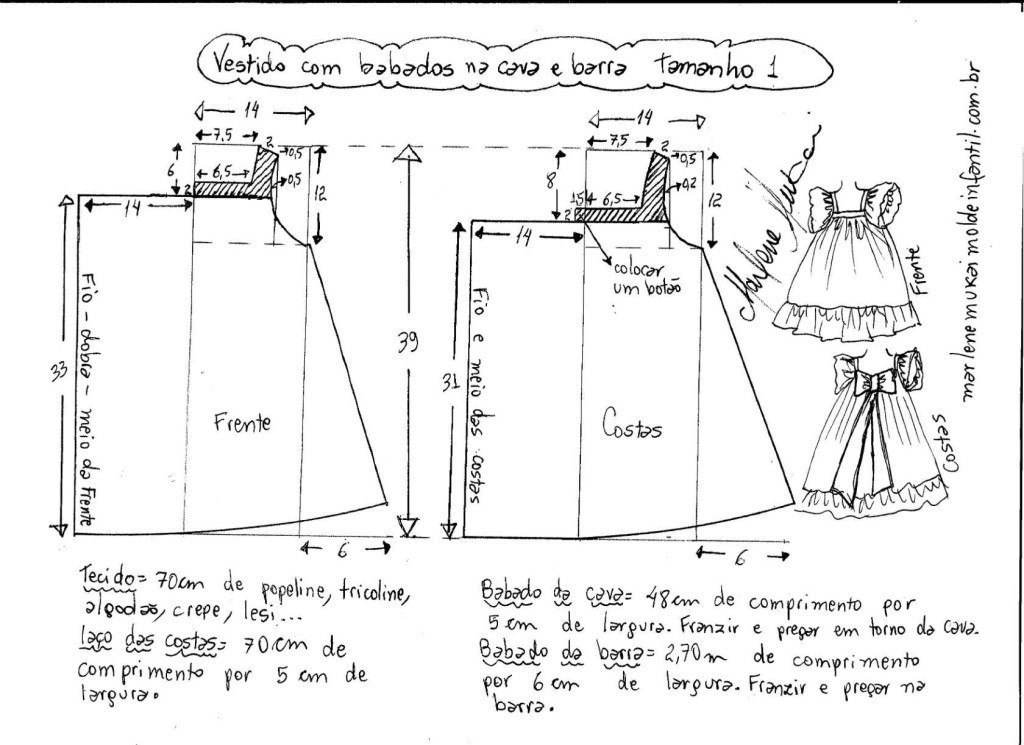 Vestido com babados na cava e barra tamanho 1
14
7,5
2
0,5
6
6,5
2
0,5
12
14
33
Fio - dobra - meio da Frente
Frente
6
39
14
7,5
2
0,5
8
1,5
6,5
2
0,2
12
14
colocar
um botão
31
Fio e meio das costas
Costas
6
Marlene Mukai
Frente
Costas
marlenemukaimoldeinfantil.com.br
Tecido= 70cm de popeline, tricoline,
algodão, crepe, lesi...
laço das costas= 70cm de
comprimento por 5 cm de
largura.
Babado da cava= 48cm de comprimento por
5 cm de largura. Franzir e pregar em torno da cava.
Babado da barra= 2,70m de comprimento
por 6 cm de largura. Franzir e pregar na
barra.